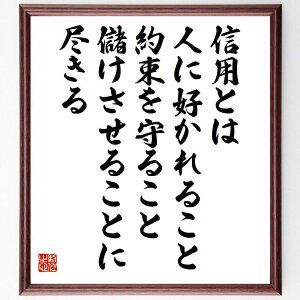 信用とは
人に好かれること
約束を守ること
儲けさせることに
尽きる